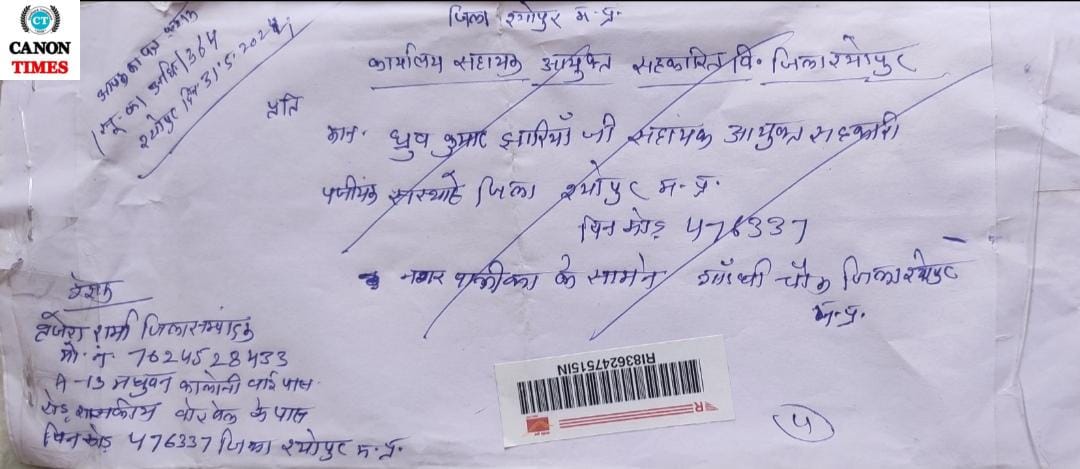 CT
CANON
TIMES
आपका पत्र क्रमांक
364
श्योपुर दि. 31.5.202
जिला श्योपुर म.प्र.
कार्यालय सहायक आयुक्त सहकारिता वि. जिला श्योपुर
प्रति
ध्रुव कुमार झारियाँ जी सहायक आयुक्त सहकारी
पंजीयक संस्थाहे जिला श्योपुर म.प्र.
पिन कोड़ 476337
नगर पालीका के सामने गाँधी चौक जिला श्योपुर
म.प्र.
प्रेशक
शर्मा जिला सम्पादक
मो.नं. 7624528433
A-13 मधुवन कालोनी वाई पास
रोड़ शासकीय वोरवेल के पास
पिन कोड़ 476337 जिला श्योपुर म.प्र.
RI836247515IN
R
4